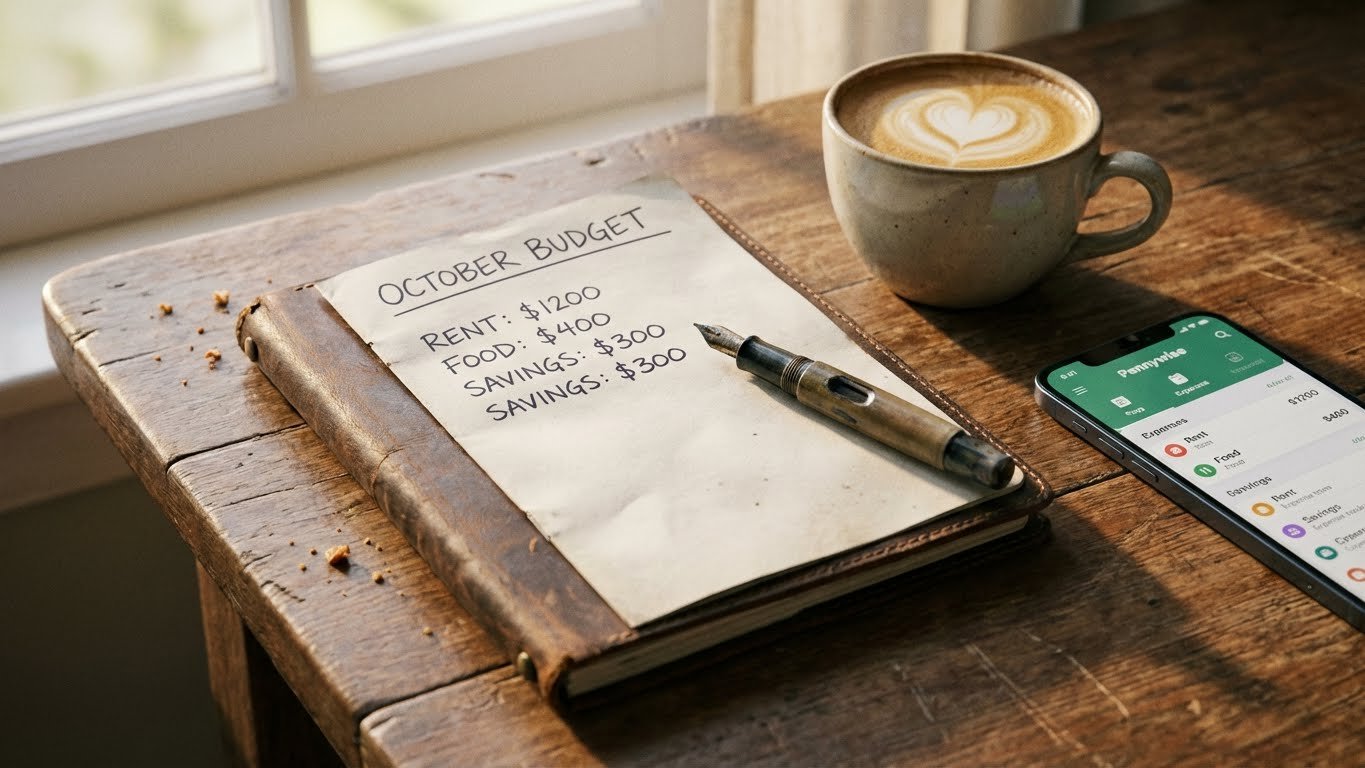 OCTOBER BUDGET
RENT: $1200
FOOD: $400
SAVINGS: $300
SAVINGS: $300
Pennywise
Expenses
Rent
$1200
Food
$400
Rent
Savings